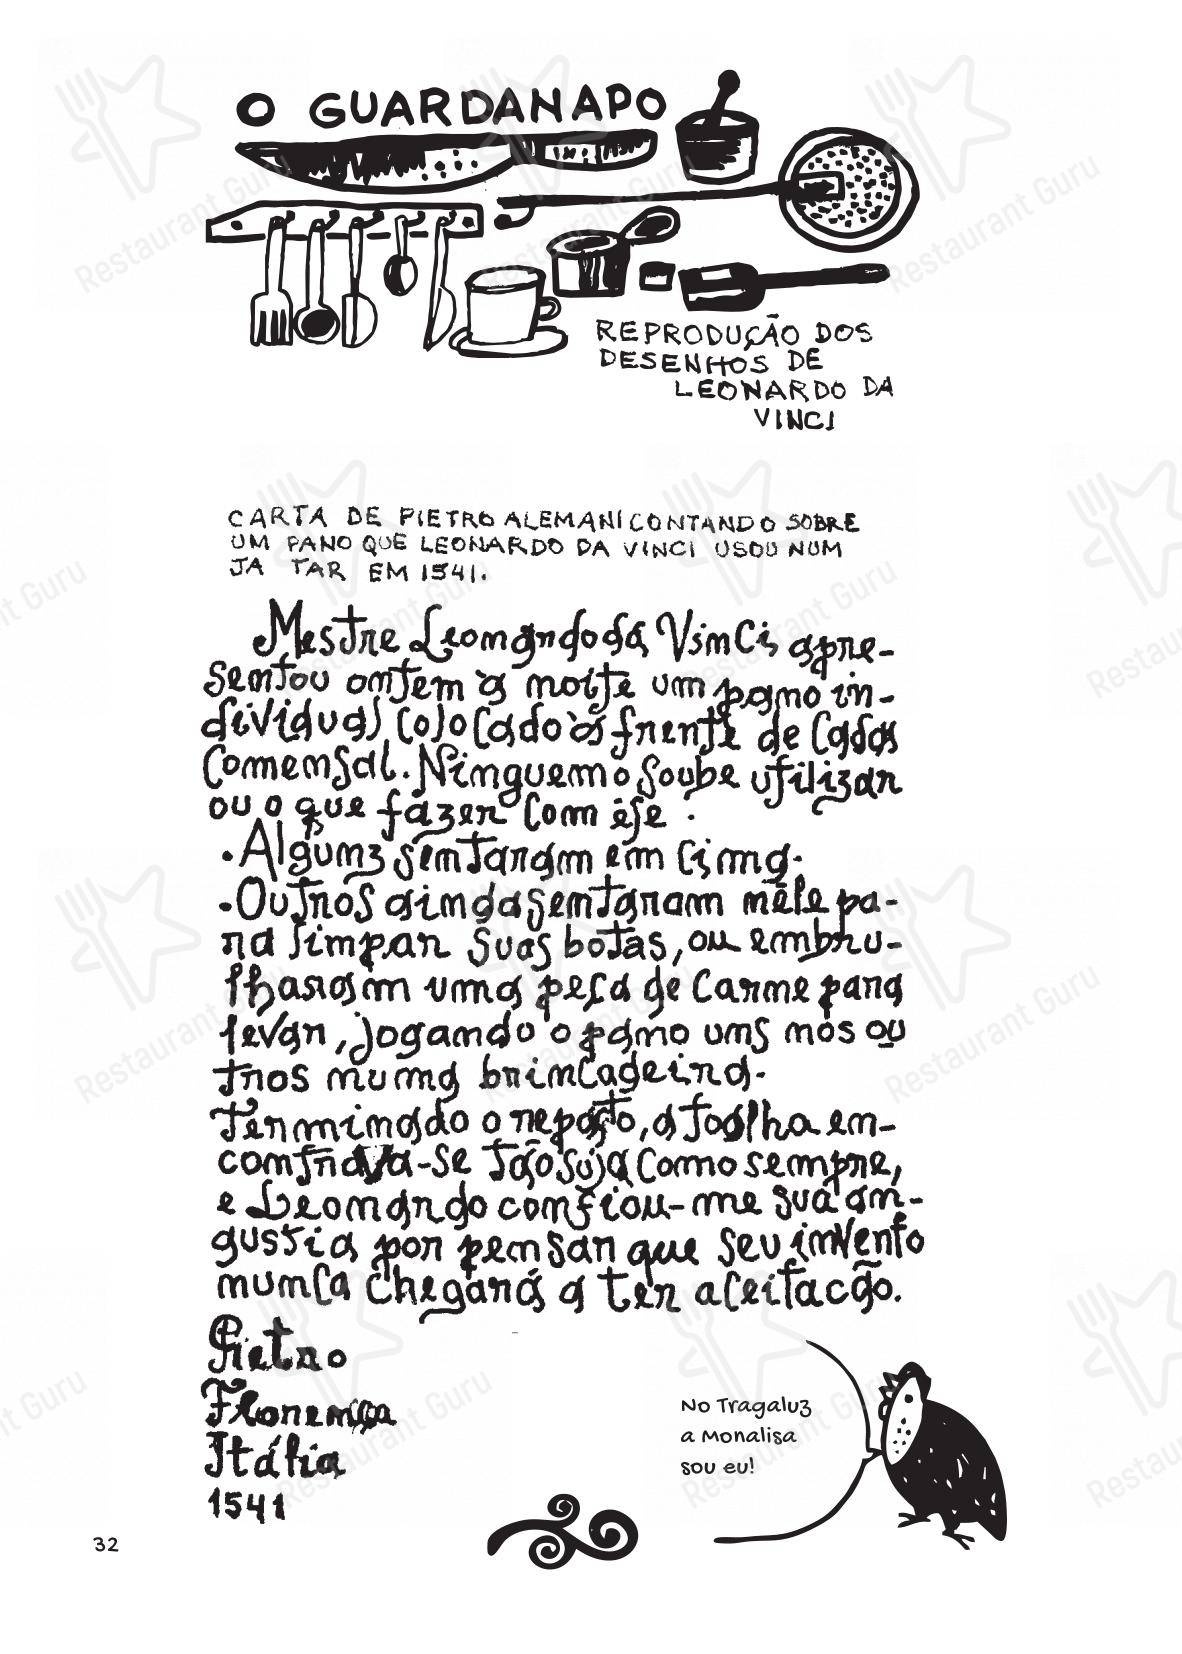 O GUARDANAPO
REPRODUÇÃO DOS
DESENHOS DE
LEONARDO DA
VINCI
CARTA DE PIETRO ALEMANI CONTANDO SOBRE
UM PANO QUE LEONARDO DA VINCI USOU NUM
JA TAR EM 1541.
Mestre Leonardo da Vinci apre-
sentou ontem à noite um pano in-
dividual colocado às frente de cada
comensal. Ninguem o soube utilizar
ou o que fazer com êle :
.Alguns sentaram em cima.
.Outros ainda sentaram nêle pa-
ra limpar suas botas, ou embru-
lharam uma peça de carne para
levar, jogando o pano uns nos ou
tros numa brincadeira.
Terminado o repasto, a toalha en-
contrava-se tão suja como sempre,
e Leonardo confiou-me sua an-
gustia por pensar que seu invento
nunca chegará a ter aceitacão.
Pietro
Florença
Itália
1541
No Tragaluz
a Monalisa
sou eu!
32
Restaurant Guru